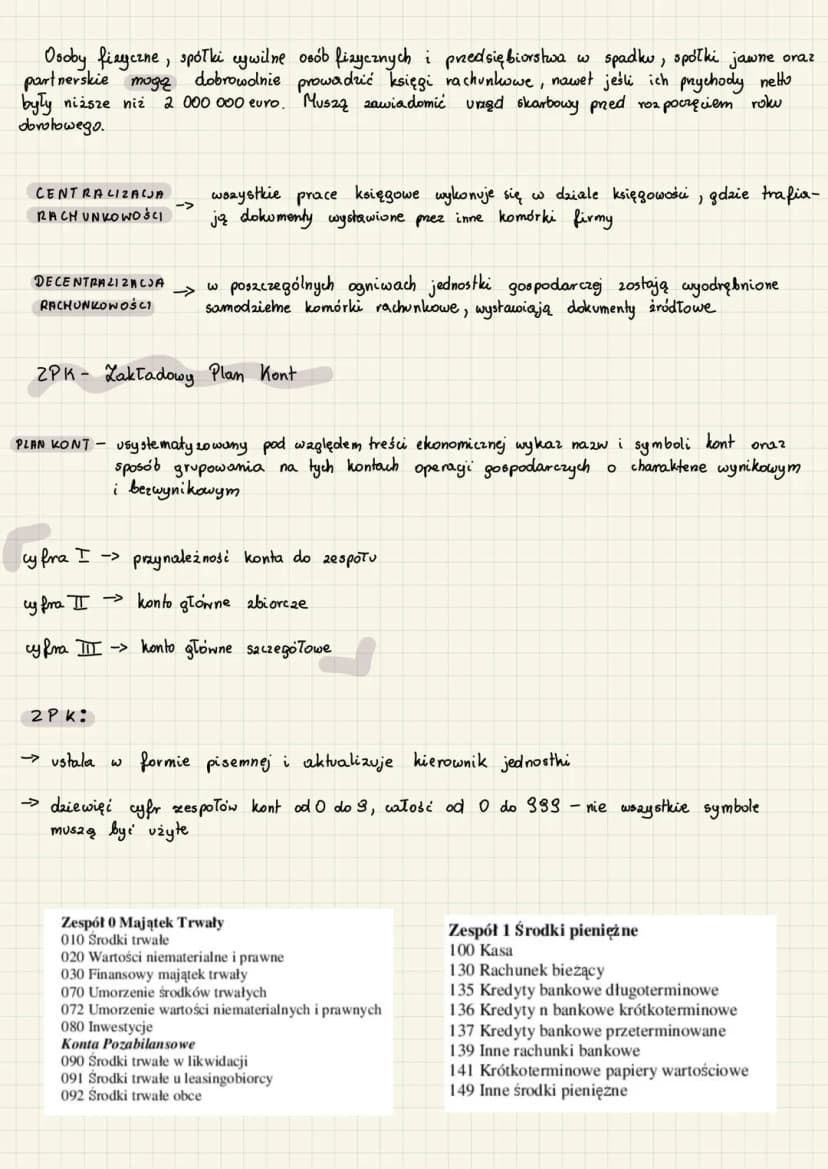 Osoby fizyczne, spółki cywilne osób fizycznych i przedsiębiorstwa w spadku, spółki jawne oraz
partnerskie mogą dobrowolnie prowadzić księgi rachunkowe, nawet jeśli ich przychody netto
były niższe niż 2 000 000 euro. Muszą zawiadomić urząd skarbowy przed rozpoczęciem roku
obrotowego.
CENTRALIZACJA
RACHUNKOWOŚCI
-> wszystkie prace księgowe wykonuje się w dziale księgowości, gdzie trafia-
ją dokumenty wystawione przez inne komórki firmy
DECENTRALIZACJA
RACHUNKOWOŚCI
-> w poszczególnych ogniwach jednostki gospodarczej zostają wyodrębnione
samodzielne komórki rachunkowe, wystawiają dokumenty źródłowe
ZPK - Zakładowy Plan Kont
PLAN KONT - usystematyzowany pod względem treści ekonomicznej wykaz nazw i symboli kont oraz
sposób grupowania na tych kontach operacji gospodarczych o charakterze wynikowym
i bezwynikowym
cyfra I -> przynależność konta do zespołu
cyfra II -> konto główne zbiorcze
cyfra III -> konto główne szczegółowe
ZPK:
-> ustala w formie pisemnej i aktualizuje kierownik jednostki
-> dziewięć cyfr zespołów kont od 0 do 9, całość od 0 do 999 - nie wszystkie symbole
muszą być użyte
Zespół 0 Majątek Trwały
010 Środki trwałe
020 Wartości niematerialne i prawne
030 Finansowy majątek trwały
070 Umorzenie środków trwałych
072 Umorzenie wartości niematerialnych i prawnych
080 Inwestycje
Konta Pozabilansowe
090 Środki trwałe w likwidacji
091 Środki trwałe u leasingobiorcy
092 Środki trwałe obce
Zespół 1 Środki pieniężne
100 Kasa
130 Rachunek bieżący
135 Kredyty bankowe długoterminowe
136 Kredyty n bankowe krótkoterminowe
137 Kredyty bankowe przeterminowane
139 Inne rachunki bankowe
141 Krótkoterminowe papiery wartościowe
149 Inne środki pieniężne